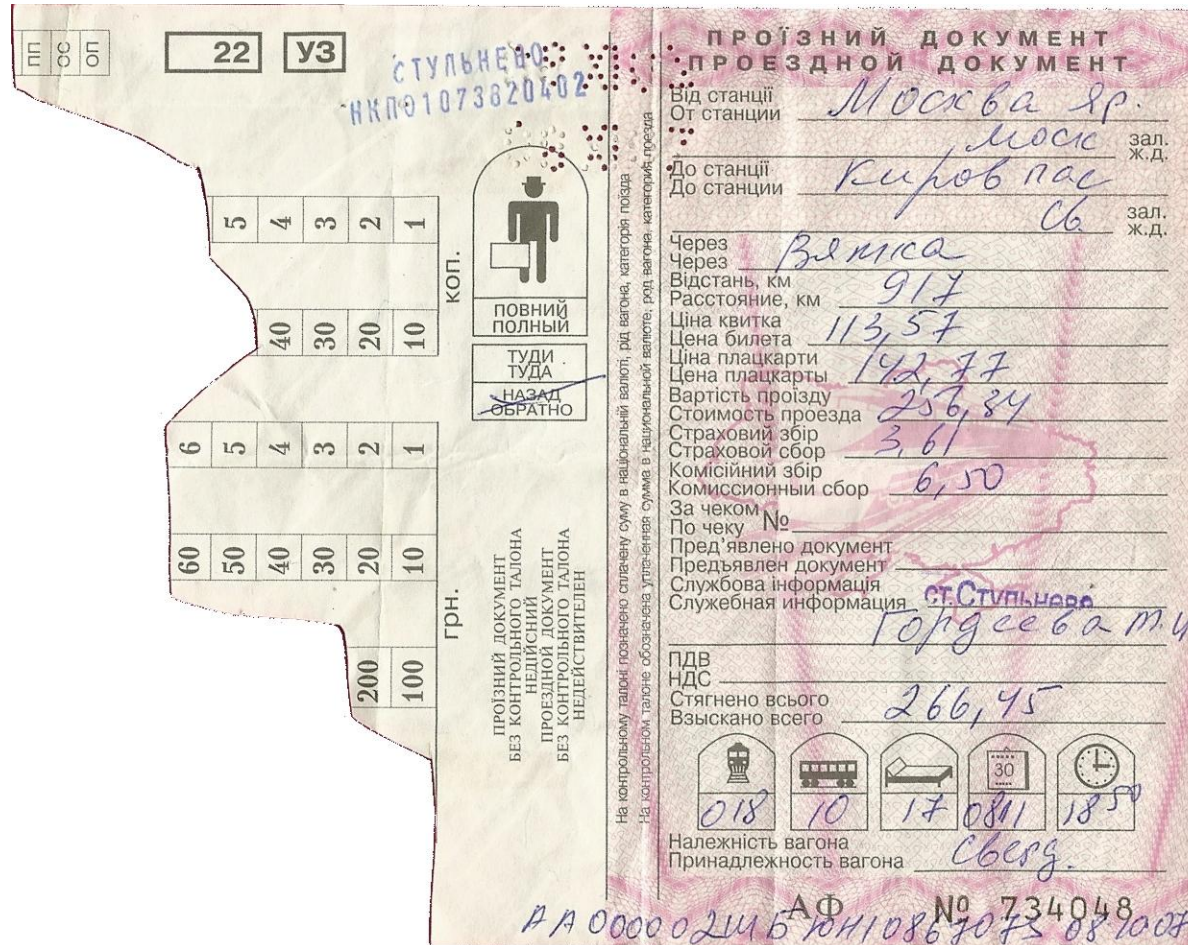 ПП
ОС
ОП
22
УЗ
СТУЛЬНЕВО
НКП01073820402
5 4 3 2 1
40 30 20 10
коп.
6 5 4 3 2 1
60 50 40 30 20 10
200 100
грн.
ПОВНИЙ
ПОЛНЫЙ
ТУДИ
ТУДА
НАЗАД
ОБРАТНО
ПРОЇЗНИЙ ДОКУМЕНТ
БЕЗ КОНТРОЛЬНОГО ТАЛОНА
НЕДІЙСНИЙ
ПРОЕЗДНОЙ ДОКУМЕНТ
БЕЗ КОНТРОЛЬНОГО ТАЛОНА
НЕДЕЙСТВИТЕЛЕН
На контрольному талоні позначено сплачену суму в національній валюті, рід вагона, категорія поїзда
На контрольном талоне обозначена уплаченная сумма в национальной валюте, род вагона, категория поезда
ПРОЇЗНИЙ ДОКУМЕНТ
ПРОЕЗДНОЙ ДОКУМЕНТ
Від станції
От станции Москва яр.
моск зал.
ж.д.
До станції
До станции Киров пас
Св. зал.
ж.д.
Через
Через Вятка
Відстань, км
Расстояние, км 917
Ціна квитка
Цена билета 113,57
Ціна плацкарти
Цена плацкарты 142,77
Вартість проїзду
Стоимость проезда 256,34
Страховий збір
Страховой сбор 3,61
Комісійний збір
Комиссионный сбор 6,50
За чеком
По чеку №
Пред'явлено документ
Предъявлен документ
Службова інформація
Служебная информация ст.Стульнево
Гордеева Т.И
ПДВ
НДС
Стягнено всього
Взыскано всего 266,45
30
018 10 17 0811 18 50
Належність вагона
Принадлежность вагона Сверд.
АФ № 734048